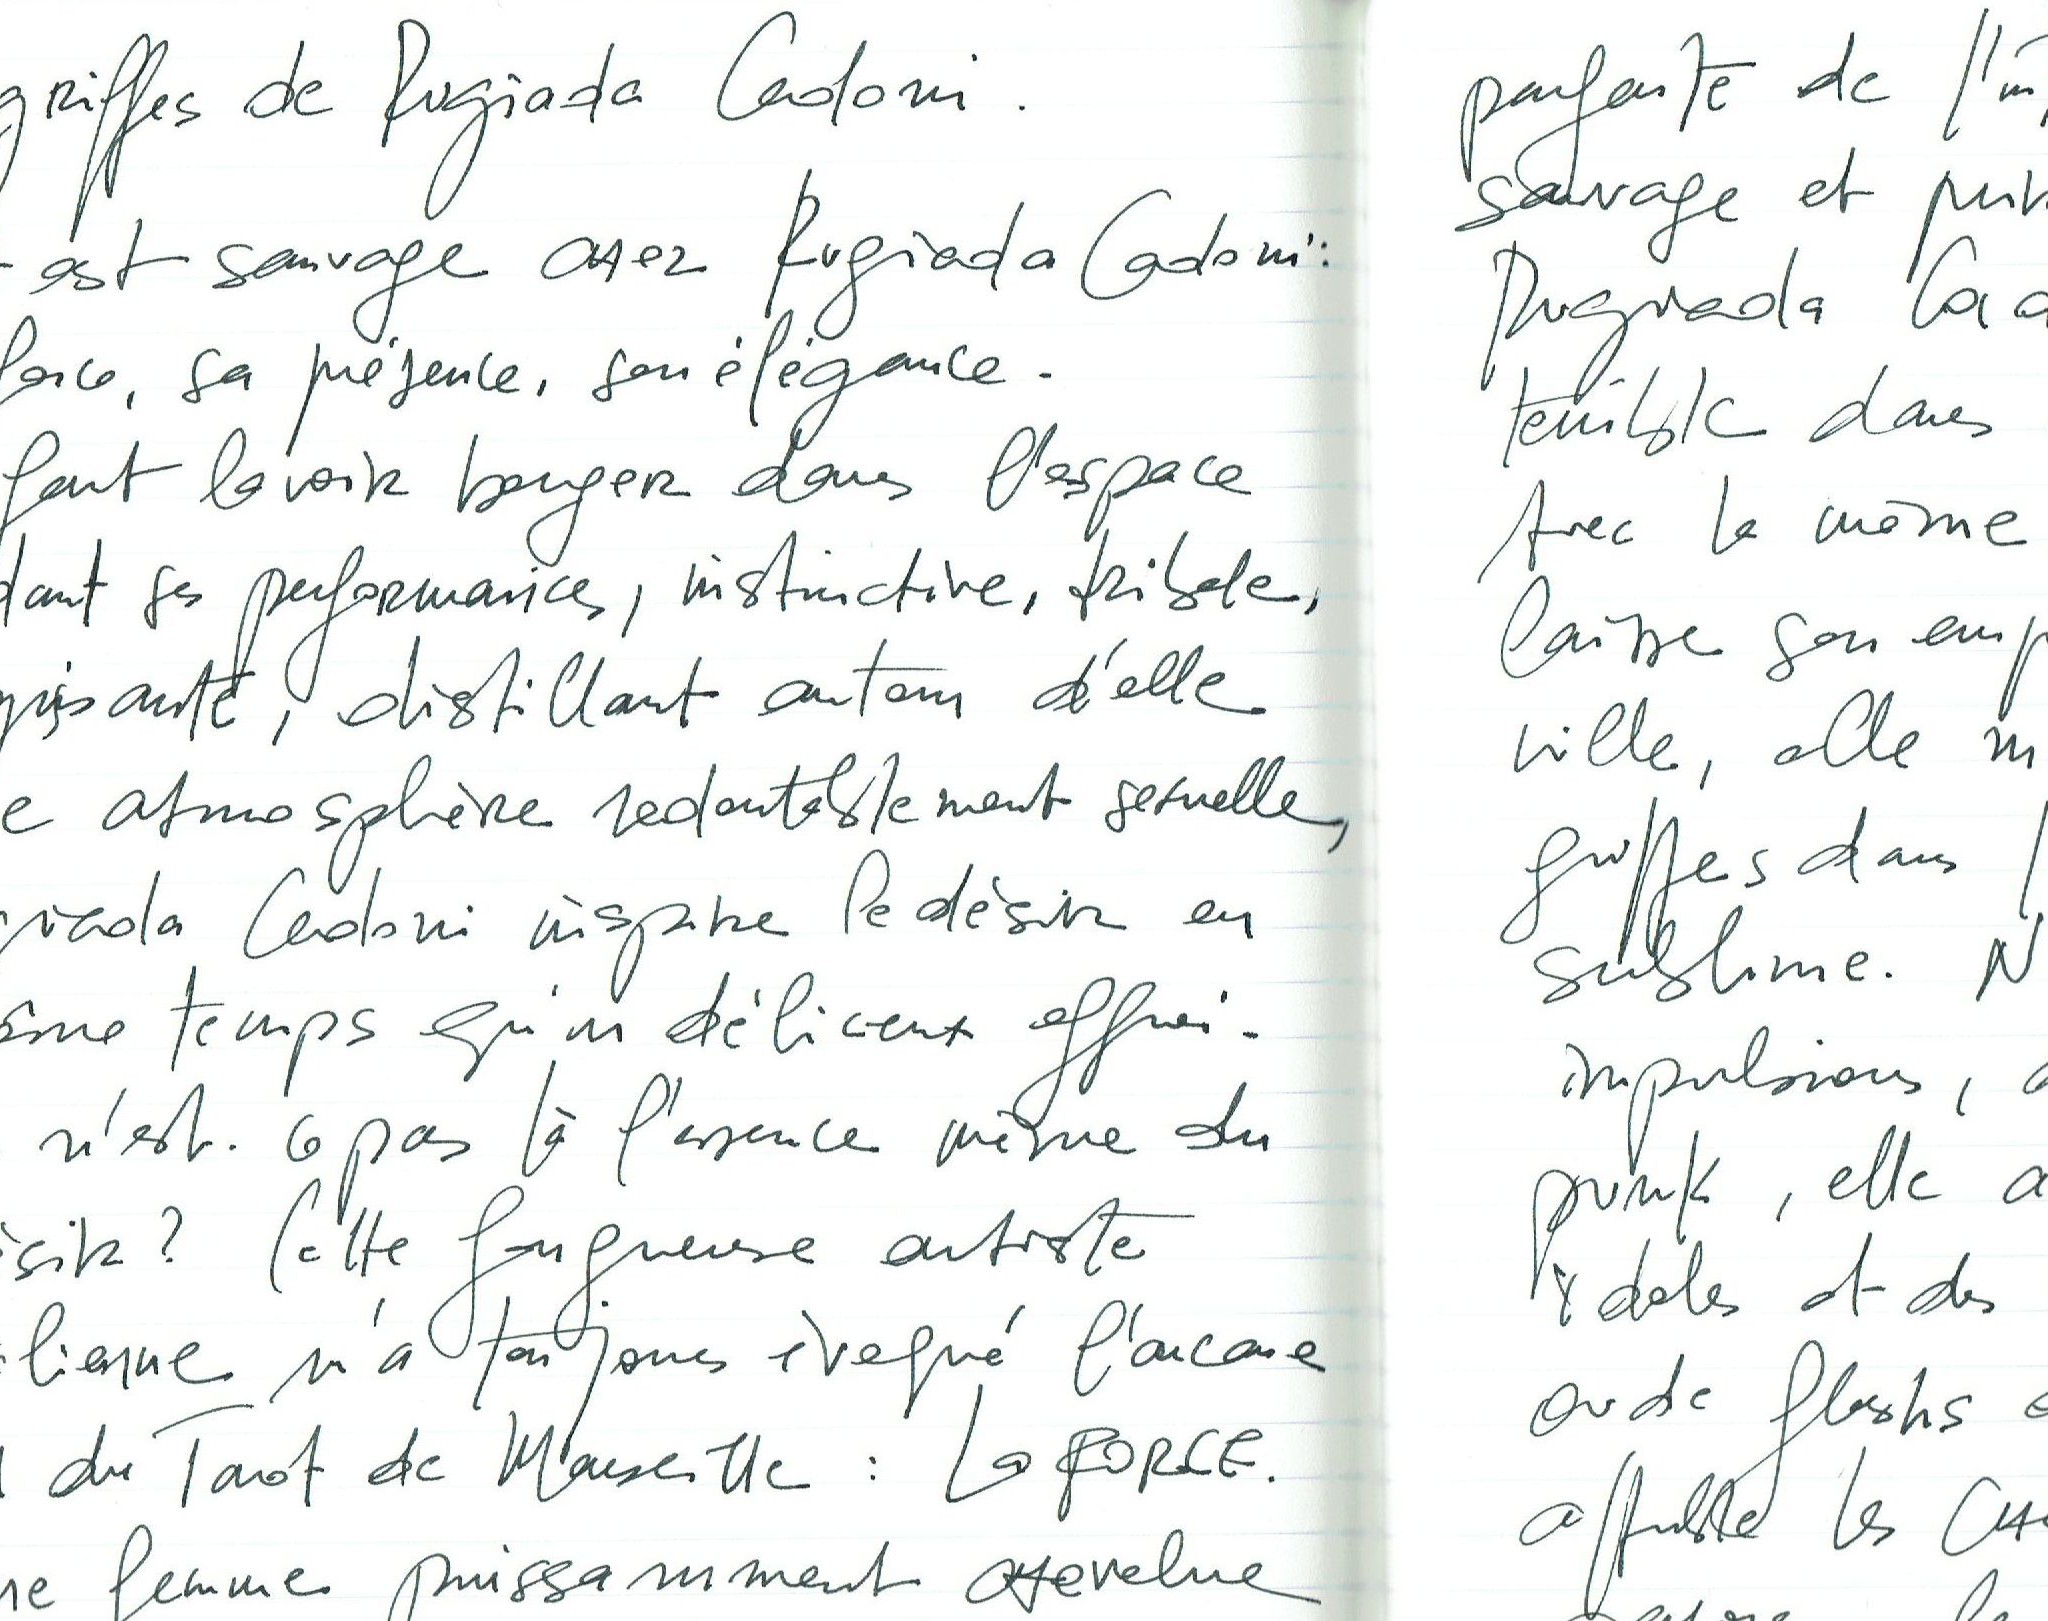 griffes de Rugiada Cadoni.
est sauvage chez Rugiada Cadoni :
force, sa présence, son élégance.
faut la voir bouger dans l'espace
dant ses performances, instinctive, tribale,
puissante, distillant autour d'elle
e atmosphère redoutablement sexuelle,
giada Cadoni inspire le désir en
ême temps qu'un délicieux effroi.
n'est-ce pas là l'essence même du
ésir ? Cette fougueuse artiste
n'a toujours évoqué l'arcane
du Tarot de Marseille : La FORCE.
ne femme puissamment chevelue
parfaite de l'in
sauvage et
Rugiada Cad
terrible dans
Avec la même
laisse son emp
ville, elle m
griffes dans l
sublime. N
impulsions,
punk, elle a
idoles et des
ou de flashs
affute les